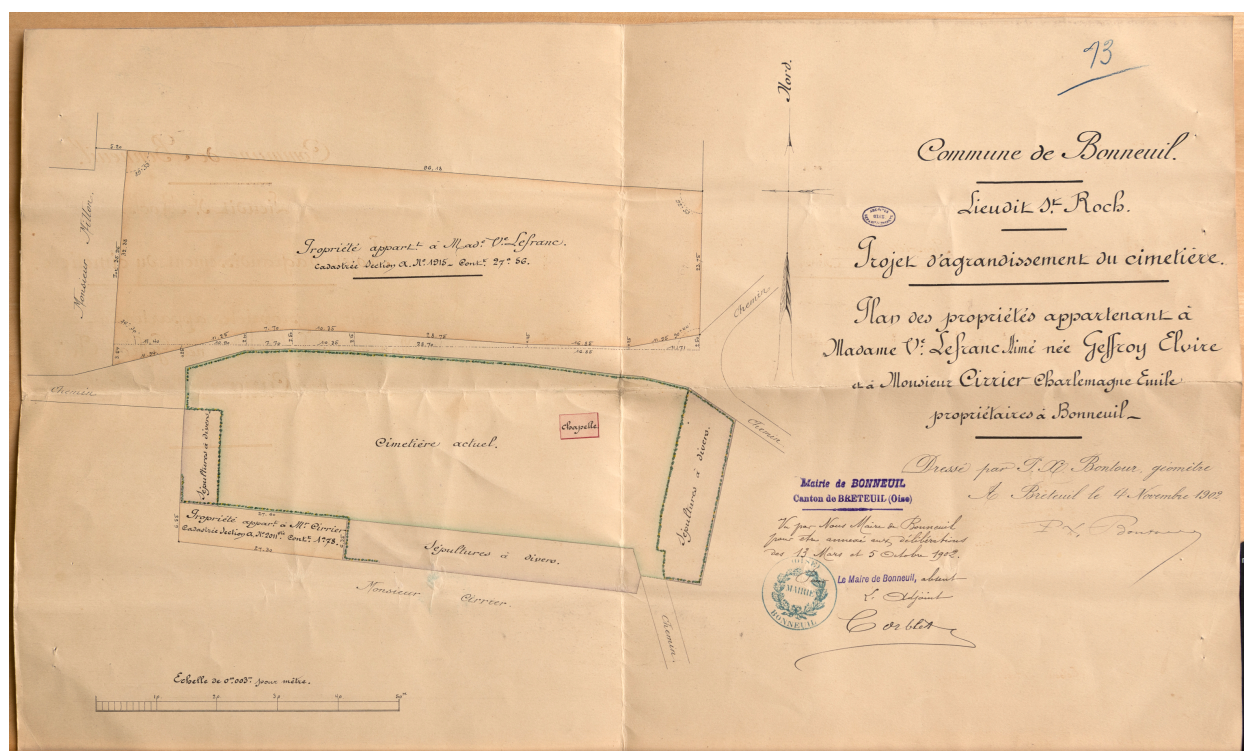 13
Nord.
Commune de Bonneuil.
Lieudit St. Roch.
Projet d'agrandissement du cimetière.
Plan des propriétés appartenant à
Madame Ve. Lefranc Aimé née Geffroy Elvire
et à Monsieur Cirrier Charlemagne Emile
propriétaires à Bonneuil_
Dressé par P. X. Bontour, géomètre
A Breteuil le 4 Novembre 1902
P. X. Bontour
Mairie de BONNEUIL
Canton de BRETEUIL (Oise)
Vu par Nous Maire de Bonneuil
pour être annexé aux délibérations
des 13 Mars et 5 Octobre 1902.
Le Maire de Bonneuil, absent
L'Adjoint
Corblet
MAIRIE
BONNEUIL
Monsieur Millon.
5.20
Propriété appartt. à Made. Ve. Lefranc.
Cadastrée Section A. No. 1915_ Contce. 27a 56.
Chemin
Chemin
Chemin
Cimetière actuel.
Chapelle
Sépultures à divers.
Sépultures à divers.
Propriété appartt. à Mr. Cirrier
Cadastrée Section A. No. 2011 Contce. 1a 78.
Sépultures à divers.
Monsieur Cirrier.
Chemin.
Echelle de 0m.005m. pour mètre.
10 20 30 40 50m